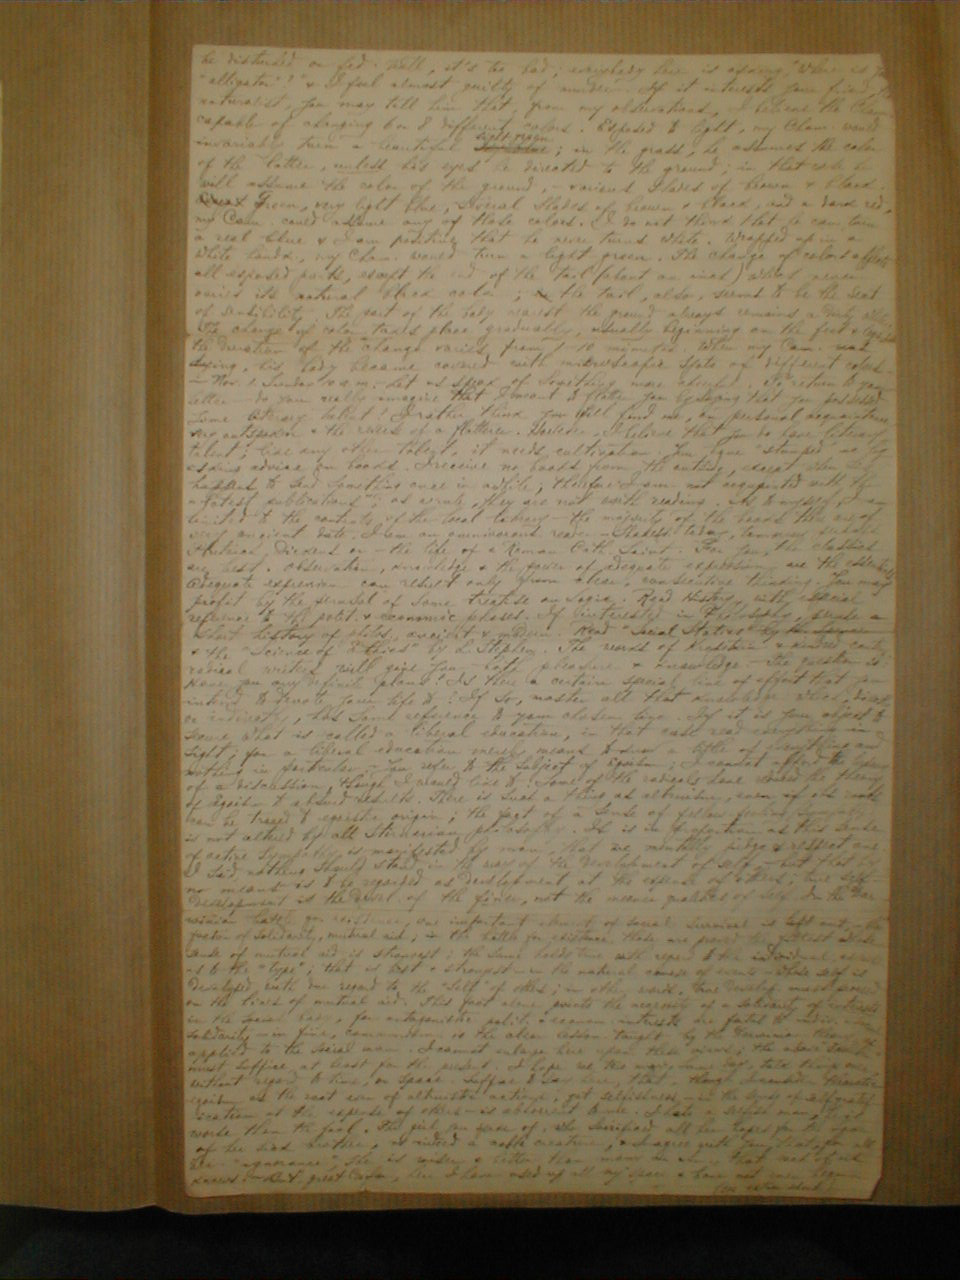 be disturbed or fed. Well, it's too bad; everybody here is asking, "Where is your
"alligator"?" & I feel almost guilty of murder. If it interests your friend, the
naturalist, you may tell him that, from my observations, I believe the Cham.
capable of changing 6 or 8 different colors. Exposed to light, my Cham. would
invariably turn a beautiful light green; in the grass, he assumes the color
of the latter, unless his eyes be directed to the ground; in that case he
will assume the color of the ground, – various shades of brown & black.
Green, very light blue, several shades of brown, & black, and a dark red,
my Cam. could assume any of those colors. I do not think that he can turn
a real blue & I am positive that he never turns white. Wrapped up in a
white handk., my Cham. would turn a light green. The change of colors affects
all exposed parts, except the end of the tail (about an inch) which never
varies its natural black color; the tail, also, seems to be the seat
of sensibility. The part of the body nearest the ground always remains a dirty white.
The change of color takes place gradually, usually beginning on the feet & legs;
the duration of the change varies from 1 to 10 minutes. When my Cam. was
dying, his body became covered with microscopic spots of different colors.
– Nov. 1. Sunday 10 a.m. Let us speak of something more cheerful. To return to your
letter – do you really imagine that I meant to flatter you by saying that you possessed
some literary talent? I rather think you will find me, on personal acquaintance,
very outspoken & the reverse of a flatterer. However, I believe that you do have literary
talent; like any other talent, it needs cultivation. You have "stumped" me by
asking advice on books. I receive no books from the outside, except when they
happen to send something once in awhile; therefore I am not acquainted with the
"latest publications"; as a rule, they are not worth reading. As to myself, I am
limited to the contents of the local library – the majority of the books there are of
very ancient date. I am an omnivorous reader – Shakesp. today, tomorrow
Dickens or – the life of a Roman Cath. Saint. For you, the classics
are best. Observation, knowledge & the power of adequate expression are the essentials.
Adequate expression can result only from clear, consecutive thinking. You may
profit by the perusal of some treatise on Logic. Read History, with especial
reference to the polit. & economic phases. If interested in Philosophy, peruse a
short history of philos., ancient & modern. Read "Social Statics" by H. Spencer
& the "Science of Ethics" by L. Stephen. The works of Kropotkin & kindred
radical writers will give you both pleasure & knowledge – The question is:
have you any definite plans? Is there a certain special line of effort that you
intend to devote your life to? If so, master all that knowledge which, directly
or indirectly, has some reference to your chosen line. If it is your object to
secure what is called a liberal education, in that case read everything in
sight; for a liberal education merely means to know a little of everything and
nothing in particular. – You refer to the subject of Egoism; I cannot afford the luxury
of a discussion, though I would like to. Some of the radicals have the theory
of Egoism to absurd results. There is such a thing as altruism, even if its roots
can be traced to egoistic origin; the fact of a sense of fellow feeling (sympathy)
is not altered by all Stirnerian philosophy. It is in proportion as this sense
of active sympathy is manifested by man that we mentally judge & respect him.
I said nothing should stand in the way of the development of self, – but that by
no means is to be regarded as development at the expense of others; true self-
development is the devel. of the finer, not the meaner qualities of self. In the Dar-
winian battle for existence, one important element of social survival is left out, – the
factor of solidarity, mutual aid; in the battle for existence those are proved the fittest whose
sense of mutual aid is strongest; the same holds true with regard to the individual, as well
as to the "type"; that is best & strongest – in the natural course of events – whose self is
developed with due regard to the "self" of others; in other words, true develop. must proceed
on the lines of mutual aid. This fact alone proves the necessity of a solidarity of interests
in the social body, for antagonistic polit. & econom. interests are fatal to
solidarity – in fine, communism is the clear lesson taught by the Darwinian theory
applied to the social man. I cannot enlarge here upon these views; the above
must suffice, at least for the present. I hope we two may, one day, talk things over
without regard to time or space. Suffice to say here, that, though I consider
egoism as the root even of altruistic actions, yet selfishness – in the sense of self-gratif-
ication at the expense of others – is abhorrent to me. I hate a selfish man, he is
worse than the fool. The girl you speak of, who sacrificed all her hopes for the sake
of her sick brother, is indeed a noble creature, & I agree with you that, for all
her "ignorance", she is wiser & better than many a one that read of us
knows. – But, great Caesar, here I have used up all my space & have not even begun
(on extra sheet)